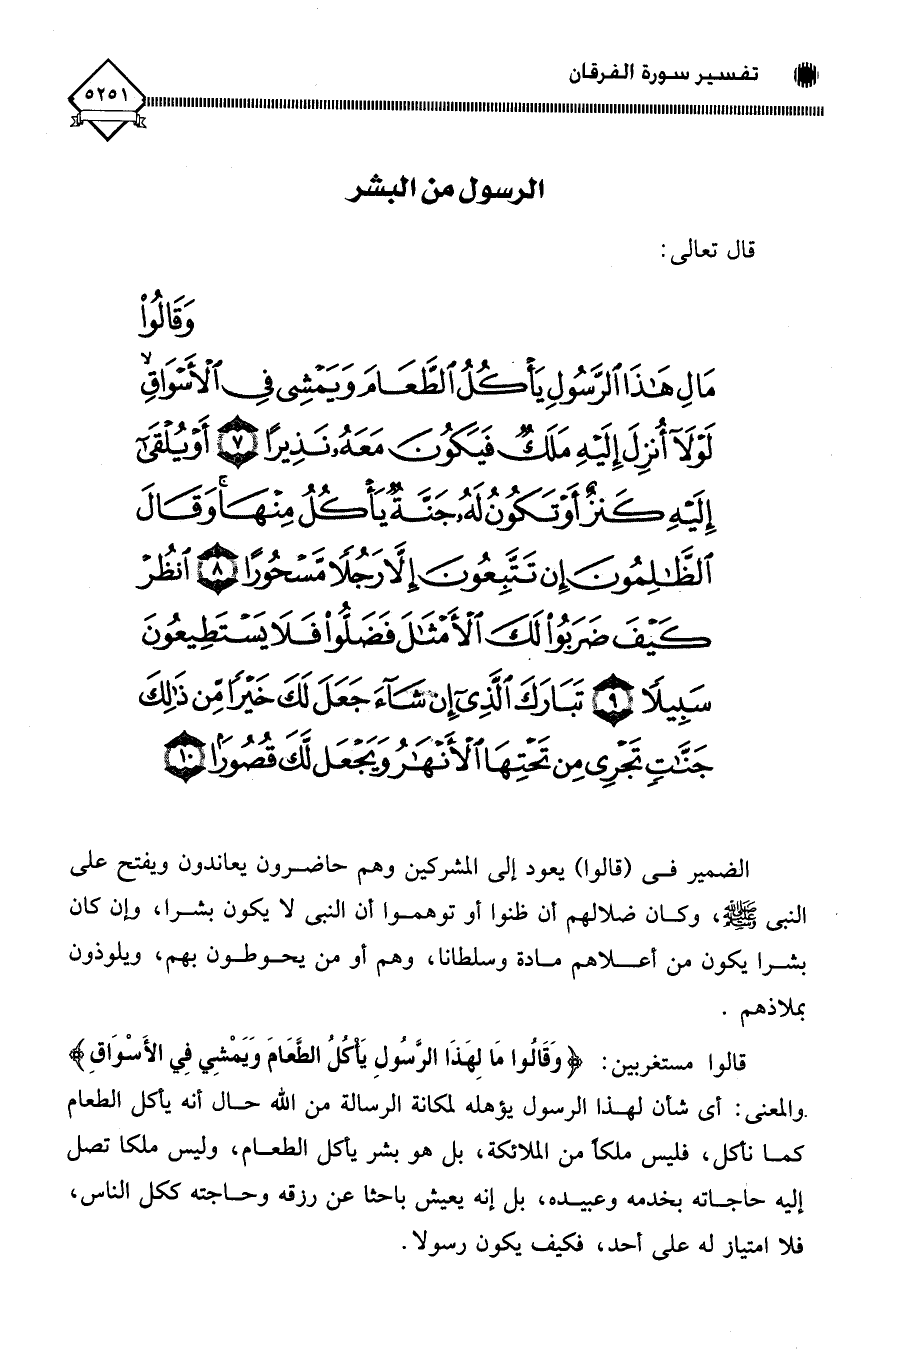 تفسير سورة الفرقان
٥٢٥١
الرسول من البشر
قال تعالى:
وَقَالُوا۟
مَالِ هَـٰذَا ٱلرَّسُولِ يَأْكُلُ ٱلطَّعَامَ وَيَمْشِى فِى ٱلْأَسْوَاقِ ۙ
لَوْلَآ أُنزِلَ إِلَيْهِ مَلَكٌ فَيَكُونَ مَعَهُۥ نَذِيرًا ٧ أَوْ يُلْقَىٰٓ
إِلَيْهِ كَنزٌ أَوْ تَكُونُ لَهُۥ جَنَّةٌ يَأْكُلُ مِنْهَا ۚ وَقَالَ
ٱلظَّـٰلِمُونَ إِن تَتَّبِعُونَ إِلَّا رَجُلًا مَّسْحُورًا ٨ ٱنظُرْ
كَيْفَ ضَرَبُوا۟ لَكَ ٱلْأَمْثَـٰلَ فَضَلُّوا۟ فَلَا يَسْتَطِيعُونَ
سَبِيلًا ٩ تَبَارَكَ ٱلَّذِىٓ إِن شَآءَ جَعَلَ لَكَ خَيْرًا مِّن ذَٰلِكَ
جَنَّـٰتٍ تَجْرِى مِن تَحْتِهَا ٱلْأَنْهَـٰرُ وَيَجْعَل لَّكَ قُصُورًا ١٠
الضمير فى (قالوا) يعود إلى المشركين وهم حاضرون يعاندون ويفتح على
النبى ﷺ، وكان ضلالهم أن ظنوا أو توهموا أن النبى لا يكون بشرا، وإن كان
بشرا يكون من أعلاهم مادة وسلطانا، وهم أو من يحوطون بهم، ويلوذون
بملاذهم .
قالوا مستغربين: ﴿وَقَالُوا مَا لِهَذَا الرَّسُولِ يَأْكُلُ الطَّعَامَ وَيَمْشِي فِي الأَسْوَاقِ﴾
والمعنى: أى شأن لهذا الرسول يؤهله لمكانة الرسالة من الله حال أنه يأكل الطعام
كما نأكل، فليس ملكاً من الملائكة، بل هو بشر يأكل الطعام، وليس ملكا تصل
إليه حاجاته بخدمه وعبيده، بل إنه يعيش باحثا عن رزقه وحاجته ككل الناس،
فلا امتياز له على أحد، فكيف يكون رسولا.